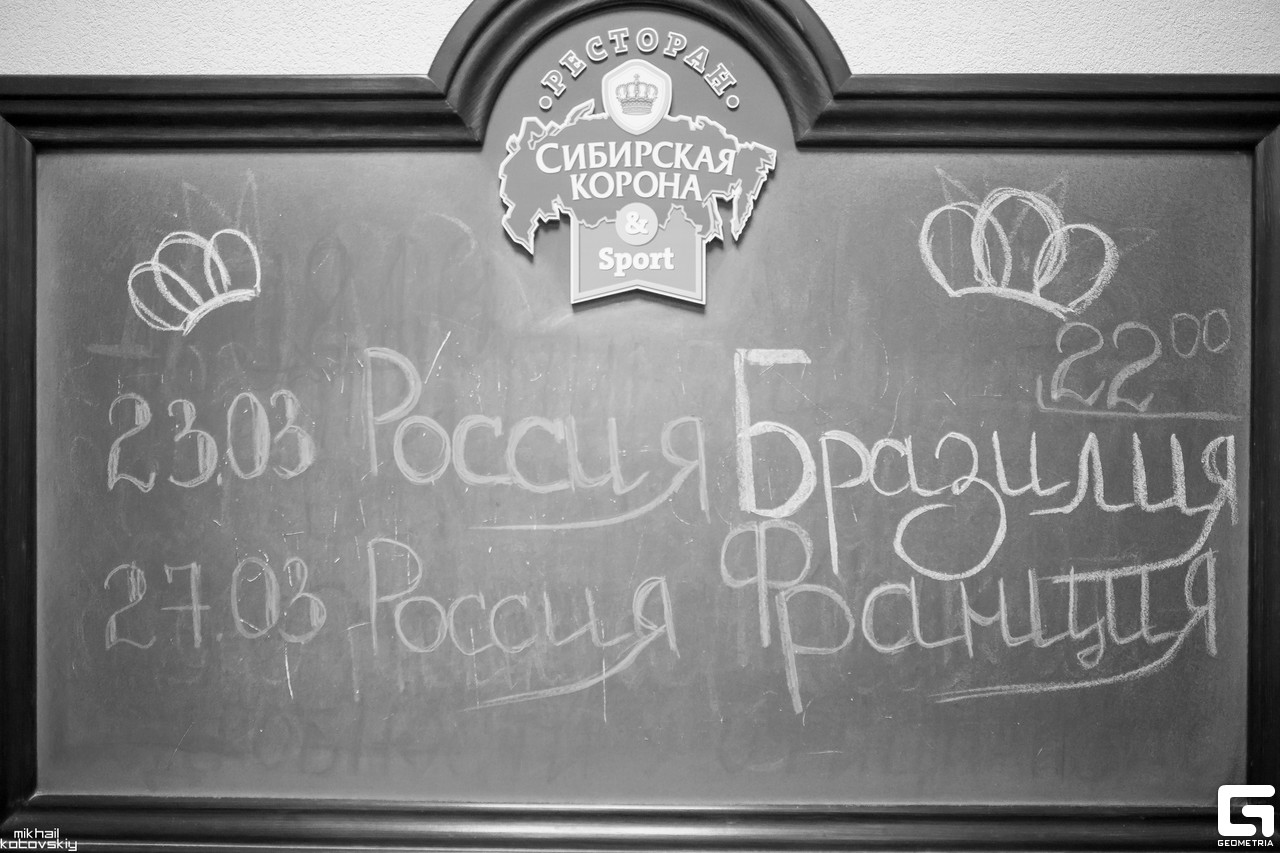 РЕСТОРАН
СИБИРСКАЯ
КОРОНА
&
Sport
22 00
23.03 Россия Бразилия
27.03 Россия Франция
mikhail
kotovskiy
GEOMETRIA